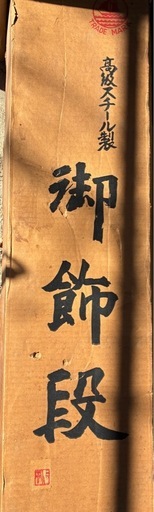 TRADE MARK
高級スチール製
御飾段